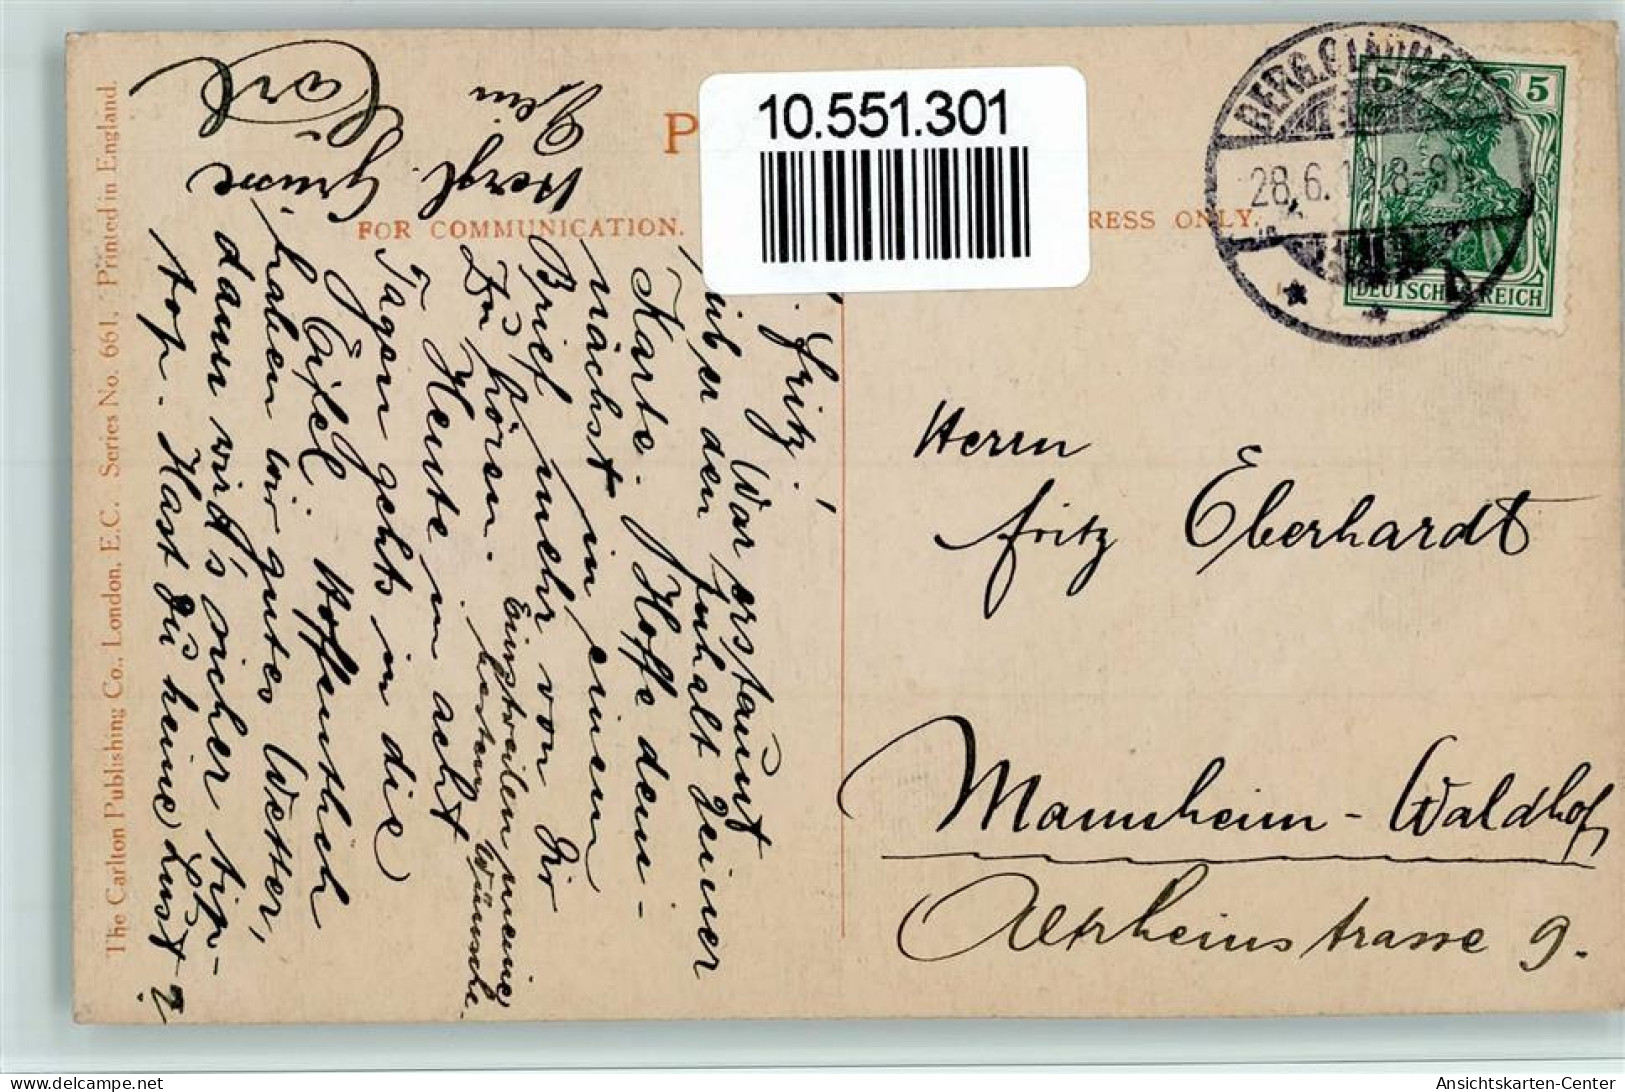 10.551.301
P
FOR COMMUNICATION.
RESS ONLY.
BERG.GLADBACH
28.6.1 8-9
b
5 5
DEUTSCHES REICH
Herrn
Fritz Eberhardt
Mannheim-Waldhof
Altrheinstrasse 9.
Fritz!
War erstaunt
über den Inhalt Deiner
Karte. Hoffe dem-
nächst in einem
Brief mehr von Dir
zu hören. Einstweilen meine
besten Wünsche.
Heute in acht
Tagen gehts in die
Eifel. Hoffentlich
haben wir gutes Wetter,
dann wird's sicher tip-
top. Hast Du keine Lust?
Herzl. Grüsse
Dein
Karl
The Carlton Publishing Co., London, E.C. Series No. 661, Printed in England.
delcampe.net
Ansichtskarten-Center